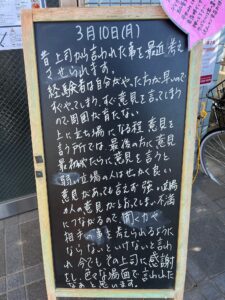 3月10日(月)
昔上司から言われた事を最近考え
させられます。
経験者は自分がやった方が早いので
すぐやってしまう、すぐ意見を言ってしまう
ので周囲が育たない
上に立つ場になる程 意見を
言う所では、最後の方に意見
最初からだらに意見を言うと
弱い立場の人は出かく良い
意見があっても言えず 強い立場
の人の意見がとおってしまい不満
につながるので、聞く力や
相手の事を考えられるように
ならないといけないと言われ
今でもその上司に感謝
色々な場面で言われた
なぁと思います。